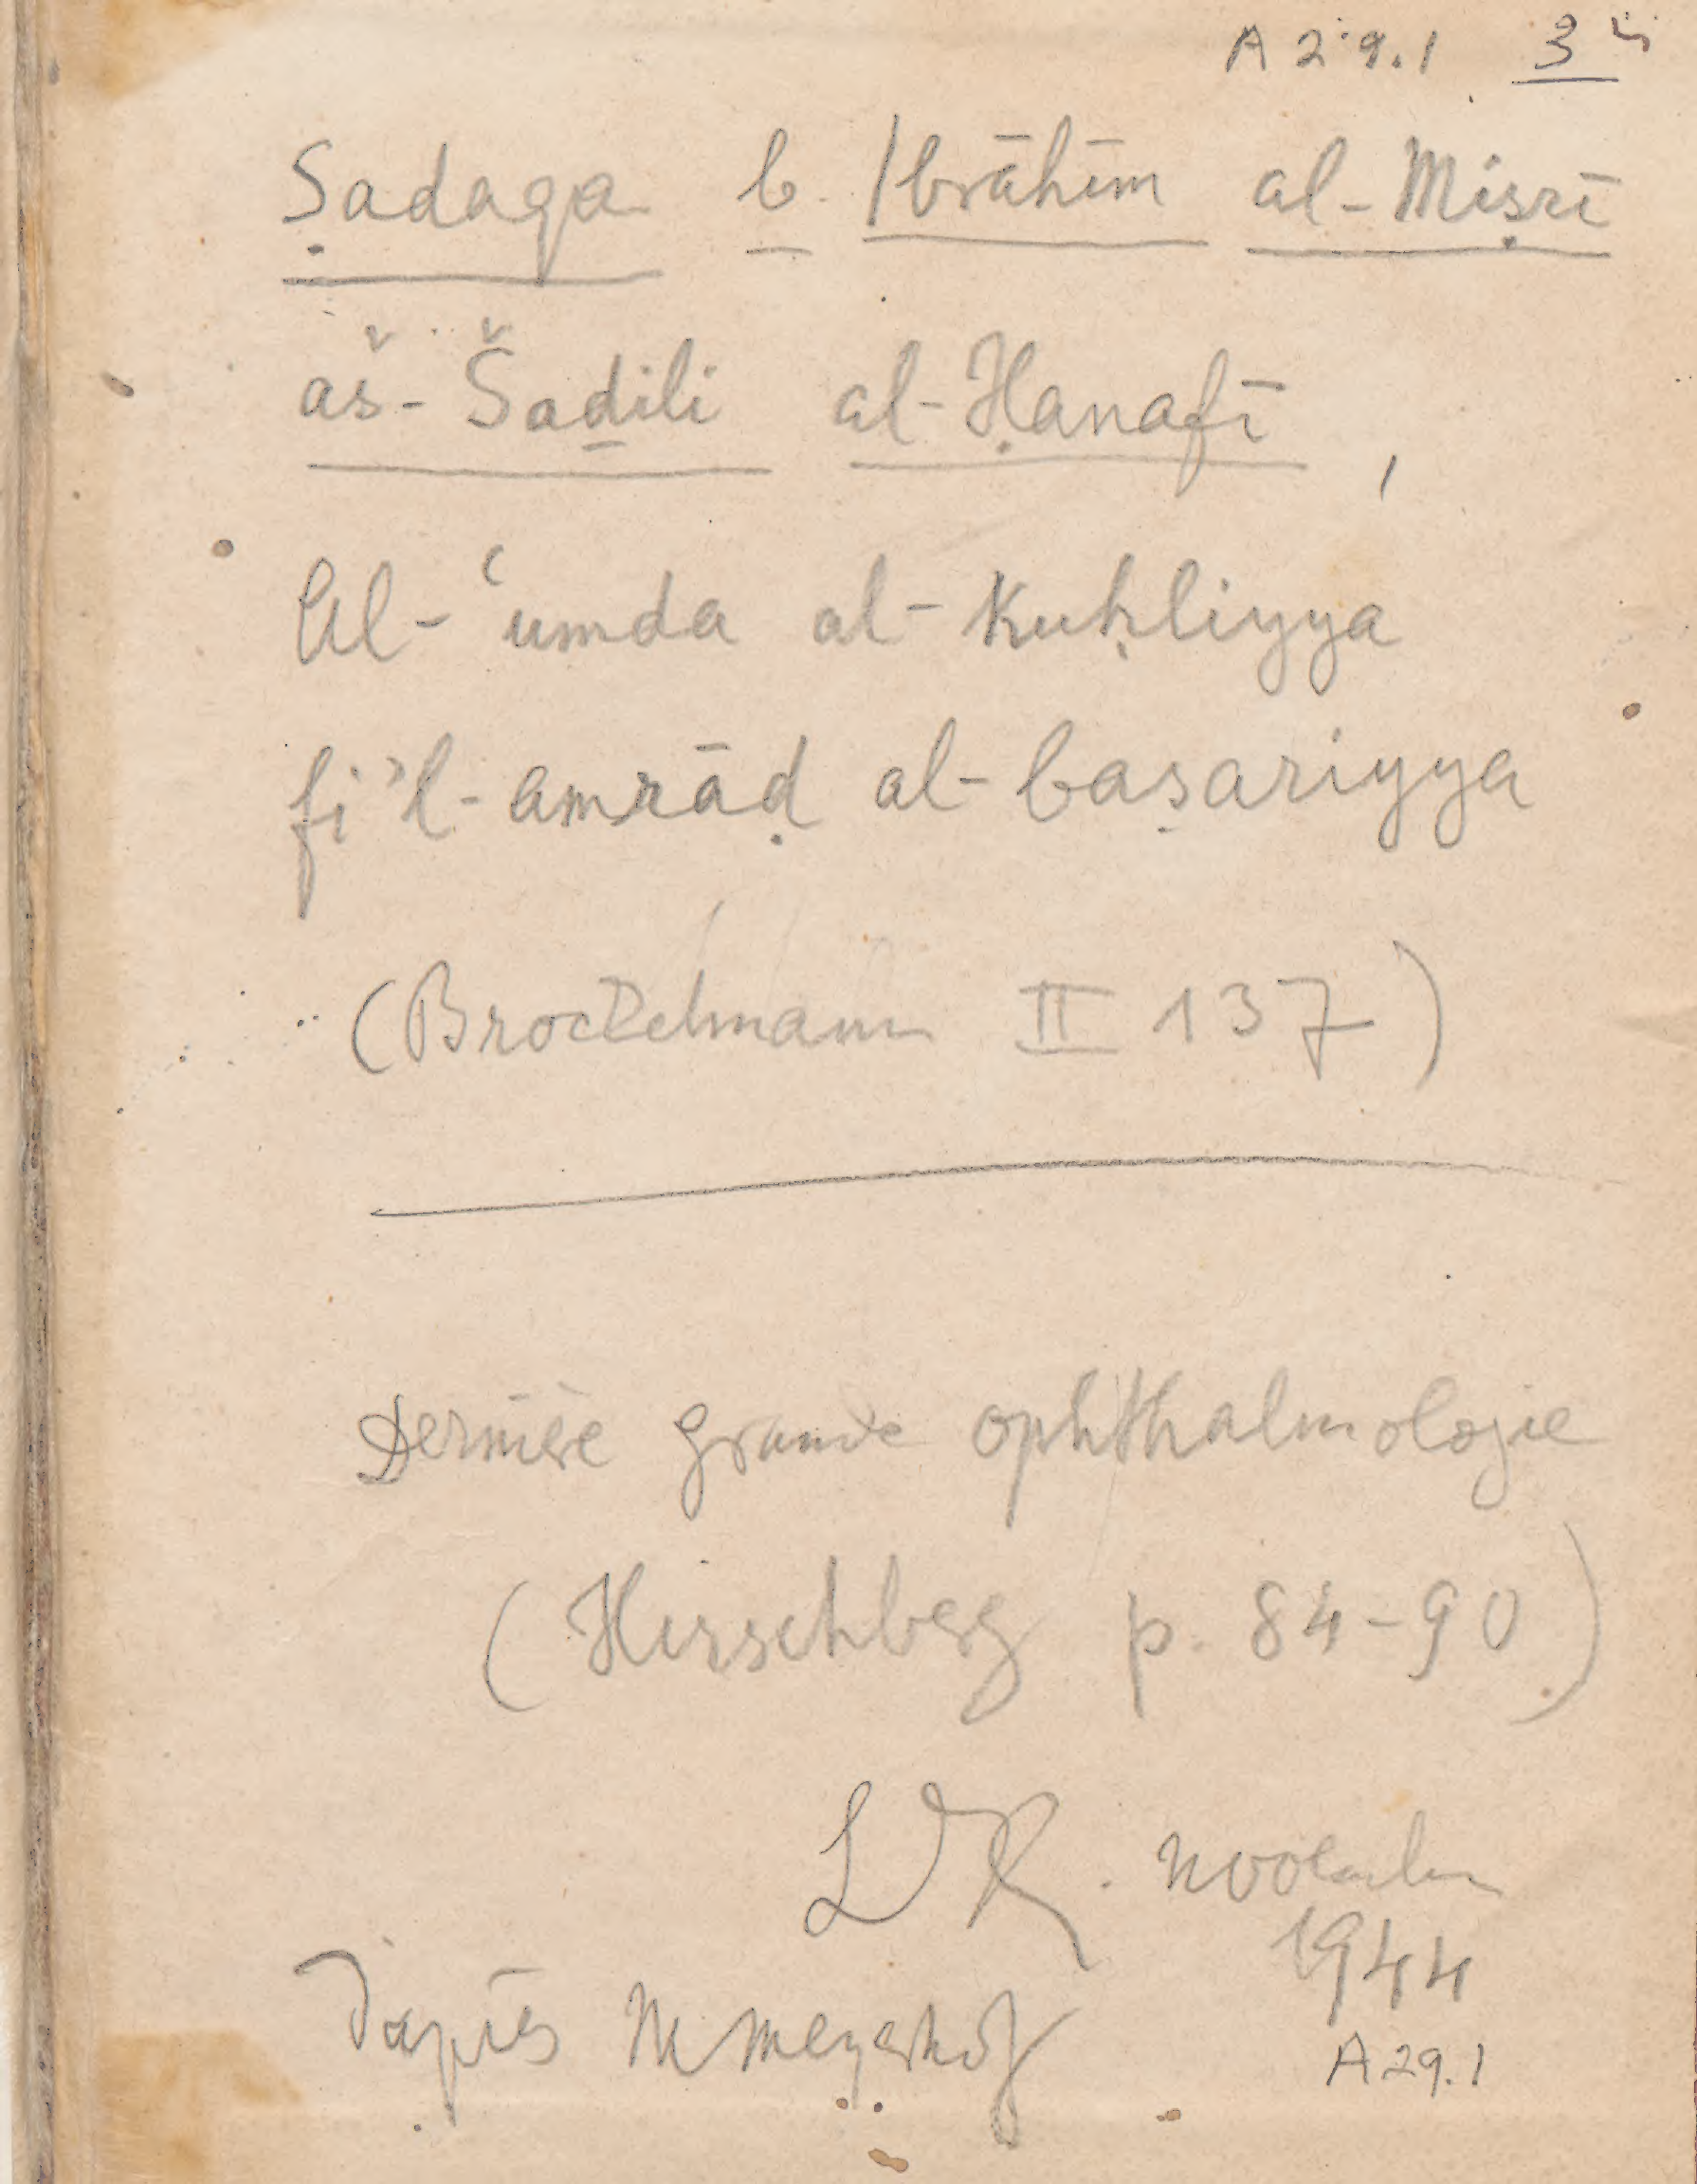 A 29.1 3
Ṣadaqa b. Ibrāhīm al-Miṣrī
aš-Šaḏili al-Ḥanafī,
Al-ʿumda al-Kuḥliyya
fi'l-amrāḍ al-baṣariyya
(Brockelmann II 137)
Dernière grande ophthalmologie
(Hirschberg p. 84-90)
1944
d'après M Meyerhof
A 29.1